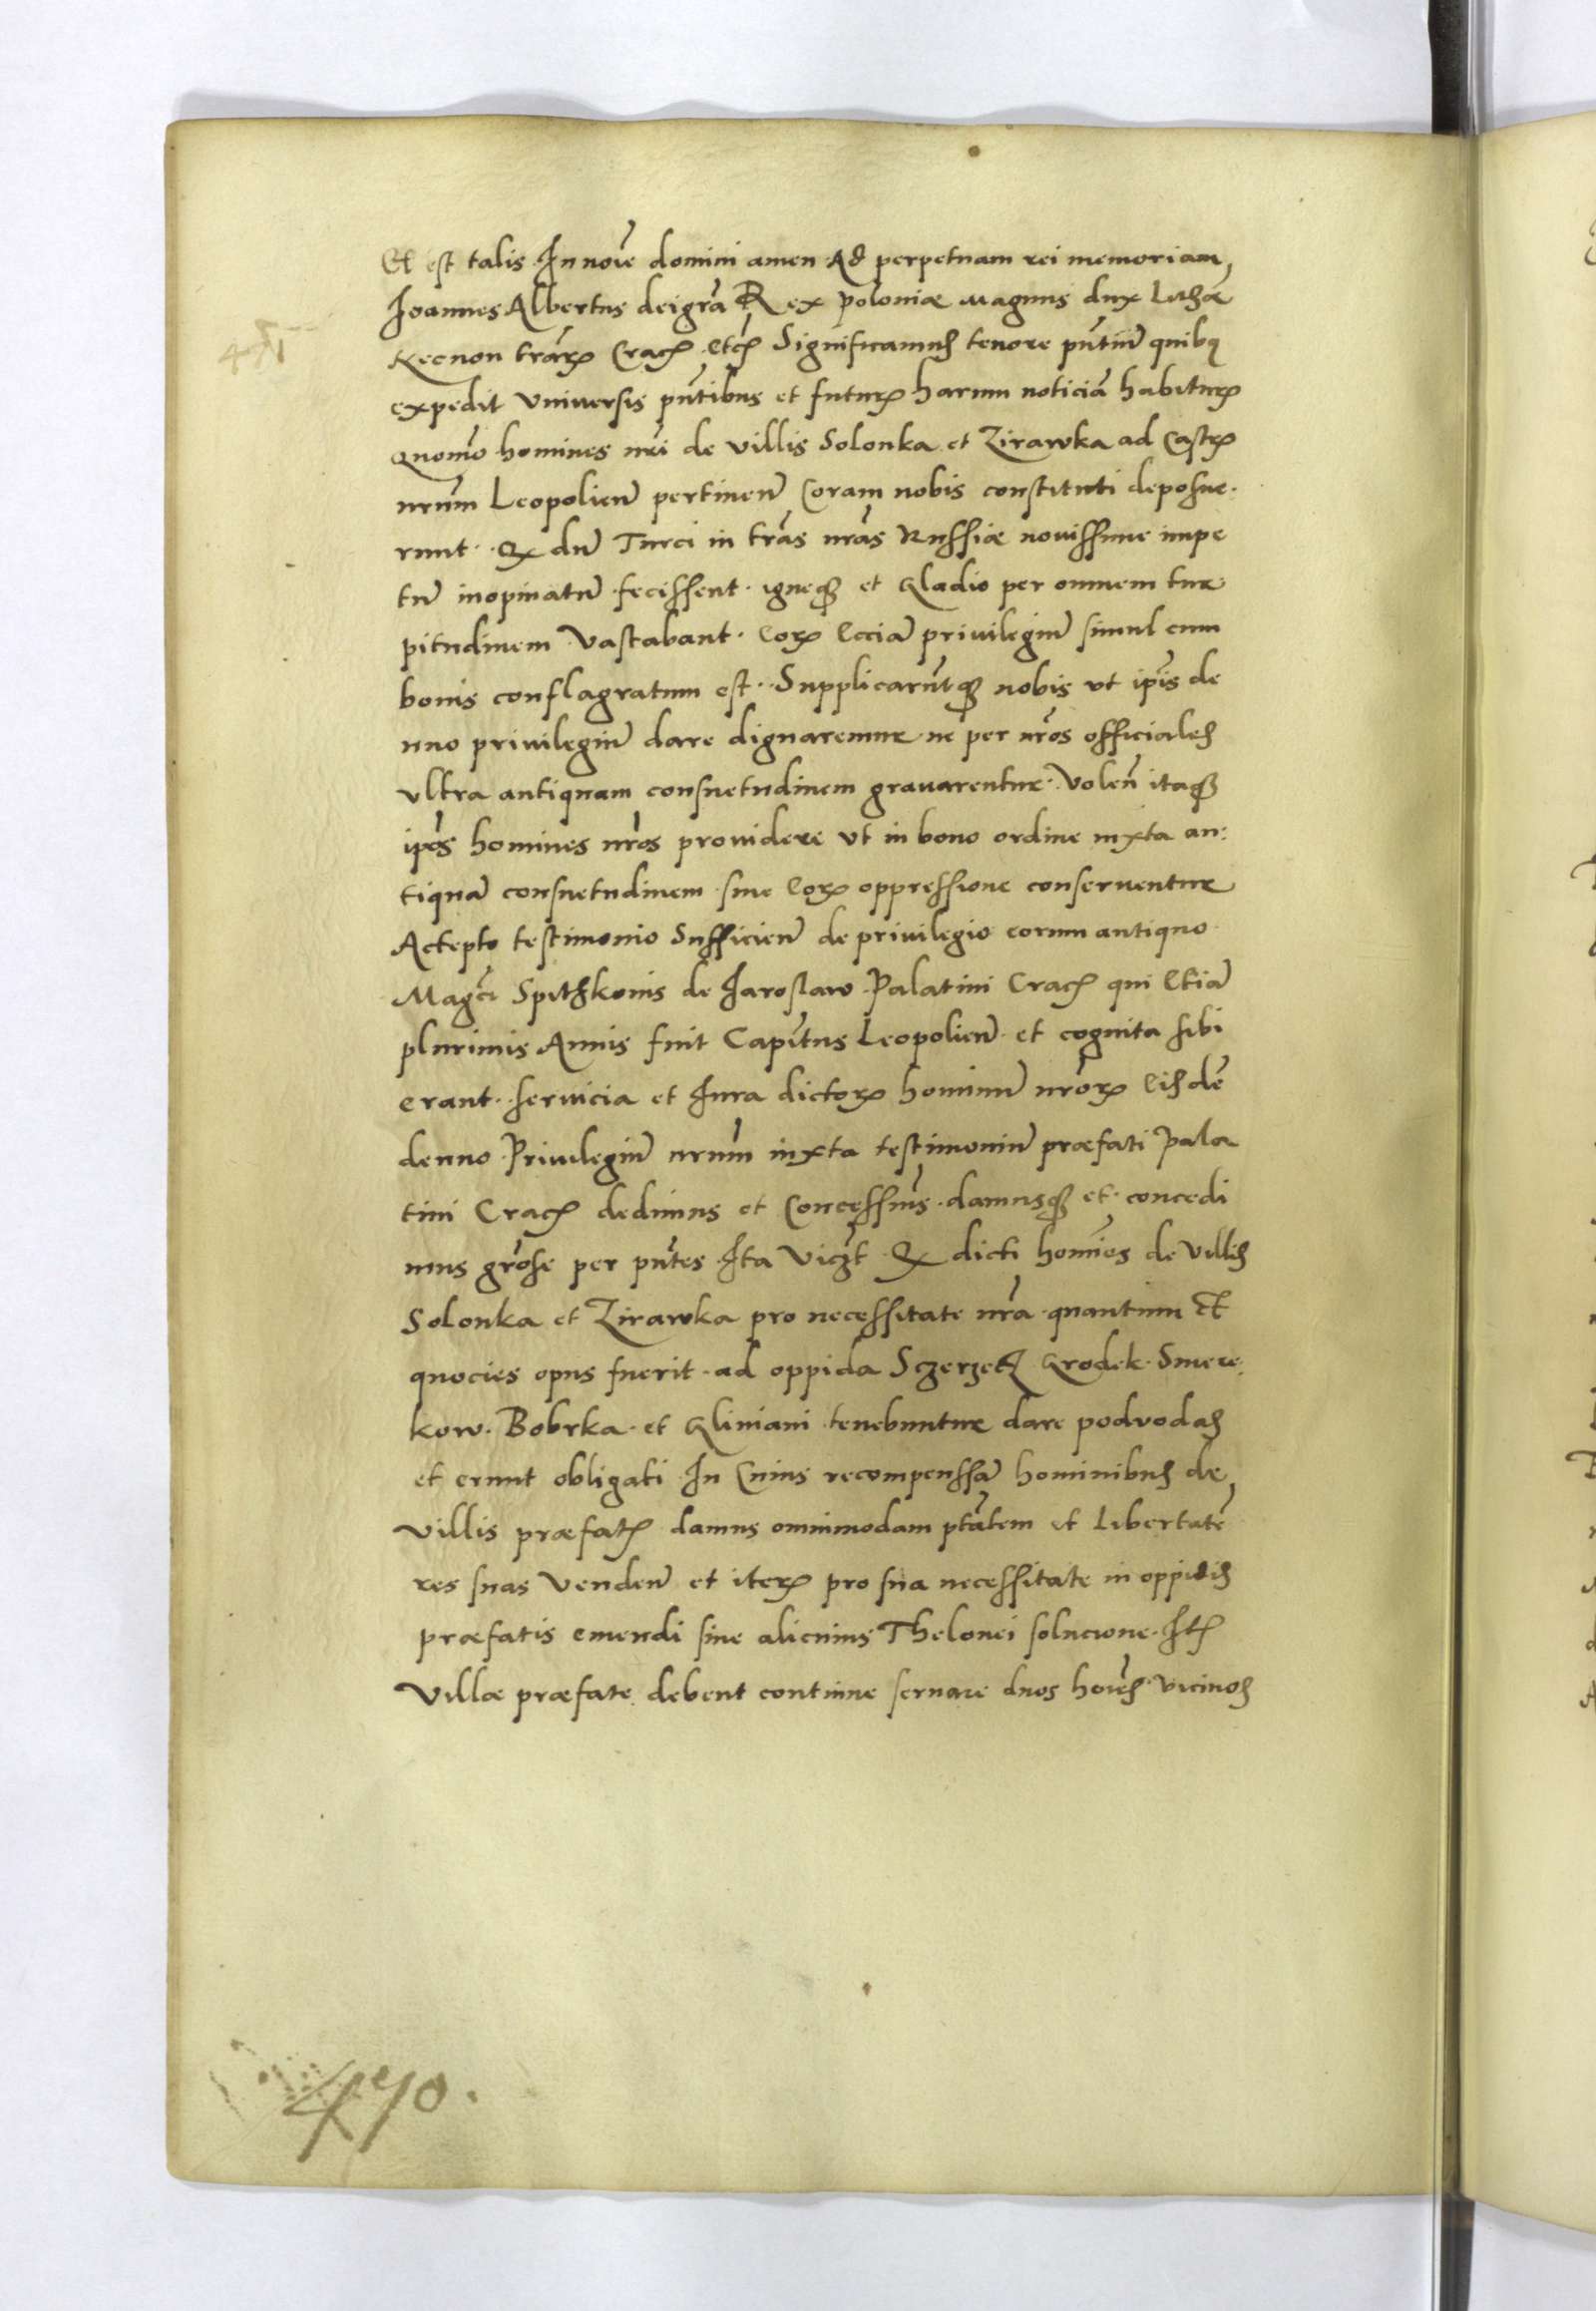 Et est talis In noīe domini amen Ad perpetuam rei memoriam,
Joannes Albertus dei gr̄a Rex poloniæ magnus dux Lithæ
Necnon tr̄arꝝ Craꝯ etꝯ Significamus tenore pn̄tiū quibꝫ
expedit Vniuersis pn̄tibus et futurꝝ harum noticiā habiturꝝ
quomō homines nr̄i de villis Solonka et Zirawka ad Castrꝝ
nrūm Leopolien̄ pertinen̄ Coram nobis constituti deposue.
runt. Qꝫ dū Turci in tr̄as nr̄as Russiæ nouissime impe
tū inopinatū fecissent. igneqꝫ et Gladio per omnem tur
pitudinem Vastabant. Eorꝝ Eciā priuilegiū simul cum
bonis conflagratum est. Supplicarūtqꝫ nobis vt ip̄is de
nuo priuilegiū dare dignaremur ne per nr̄os officiales
vltra antiquam consuetudinem grauarentur. Volen̄ itaqꝫ
ip̄os homines nr̄os prouidere vt in bono ordine iuxta an:
tiquā consuetudinem sine Eorꝝ oppressione conseruentur
Accepto testimonio Sufficien̄ de priuilegio eorum antiquo
Magc̄i Spithkonis de Jaroslaw Palatini Craꝯ qui Etiā
plurimis Annis fuit Capit̄us Leopolien̄ et cognita sibi
erant. seruicia et Jura dictorꝝ hominū nr̄orꝝ Eisdē
denuo Priuilegiū nrūm iuxta testimoniū præfati Pala
tini Craꝯ dedimus et Concessim̄s. damusqꝫ et concedi
mus gr̄ose per pn̄tes. Ita Vicꝫt Qꝫ dicti homīes de Villis
Solonka et Zirawka pro necessitate nr̄a quantum Et
quocies opus fuerit. ad oppida Sczerzetz Grodek. Smere.
kow. Bobrka. et Gliniani tenebuntur dare podvodas
et erunt obligati In Cuius recompenssā hominibus de,
Villis præfatꝯ damus omnimodam ptātem et Libertatē
res suas Venden̄ et iterꝝ pro sua necessitate in oppidis
præfatis emendi sine alicuius Thelonei solucione. Itꝯ
Villæ præfate debent continue seruare duos hoīes vicinos
470.